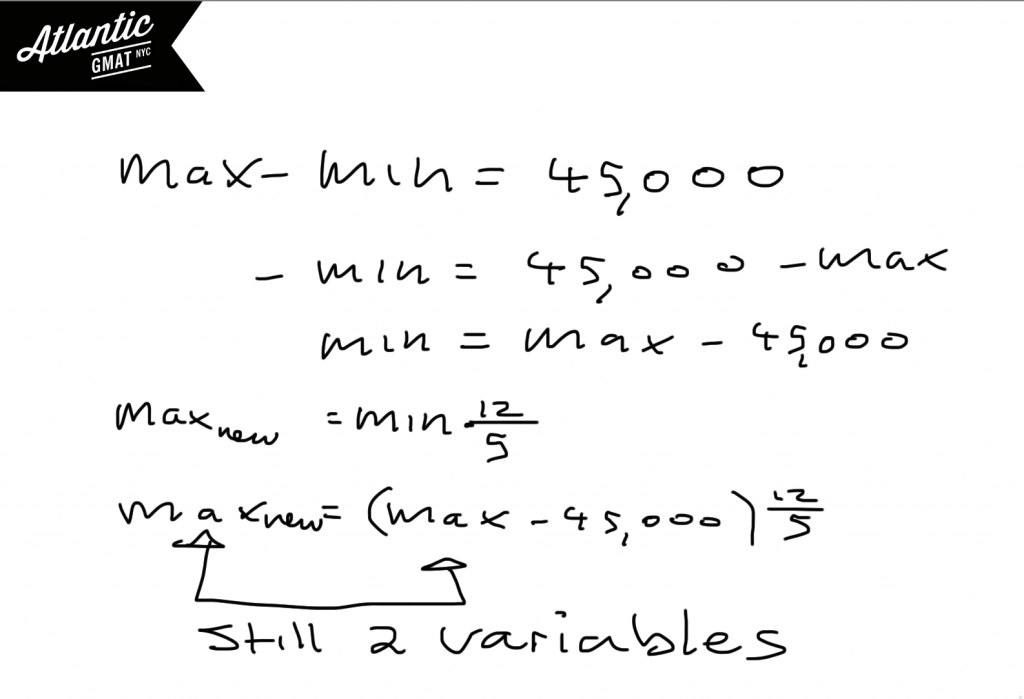 Atlantic
GMAT NYC
max - min = 45,000
- min = 45,000 - max
min = max - 45,000
max new = min 12/5
max new = (max - 45,000) 12/5
Still 2 variables